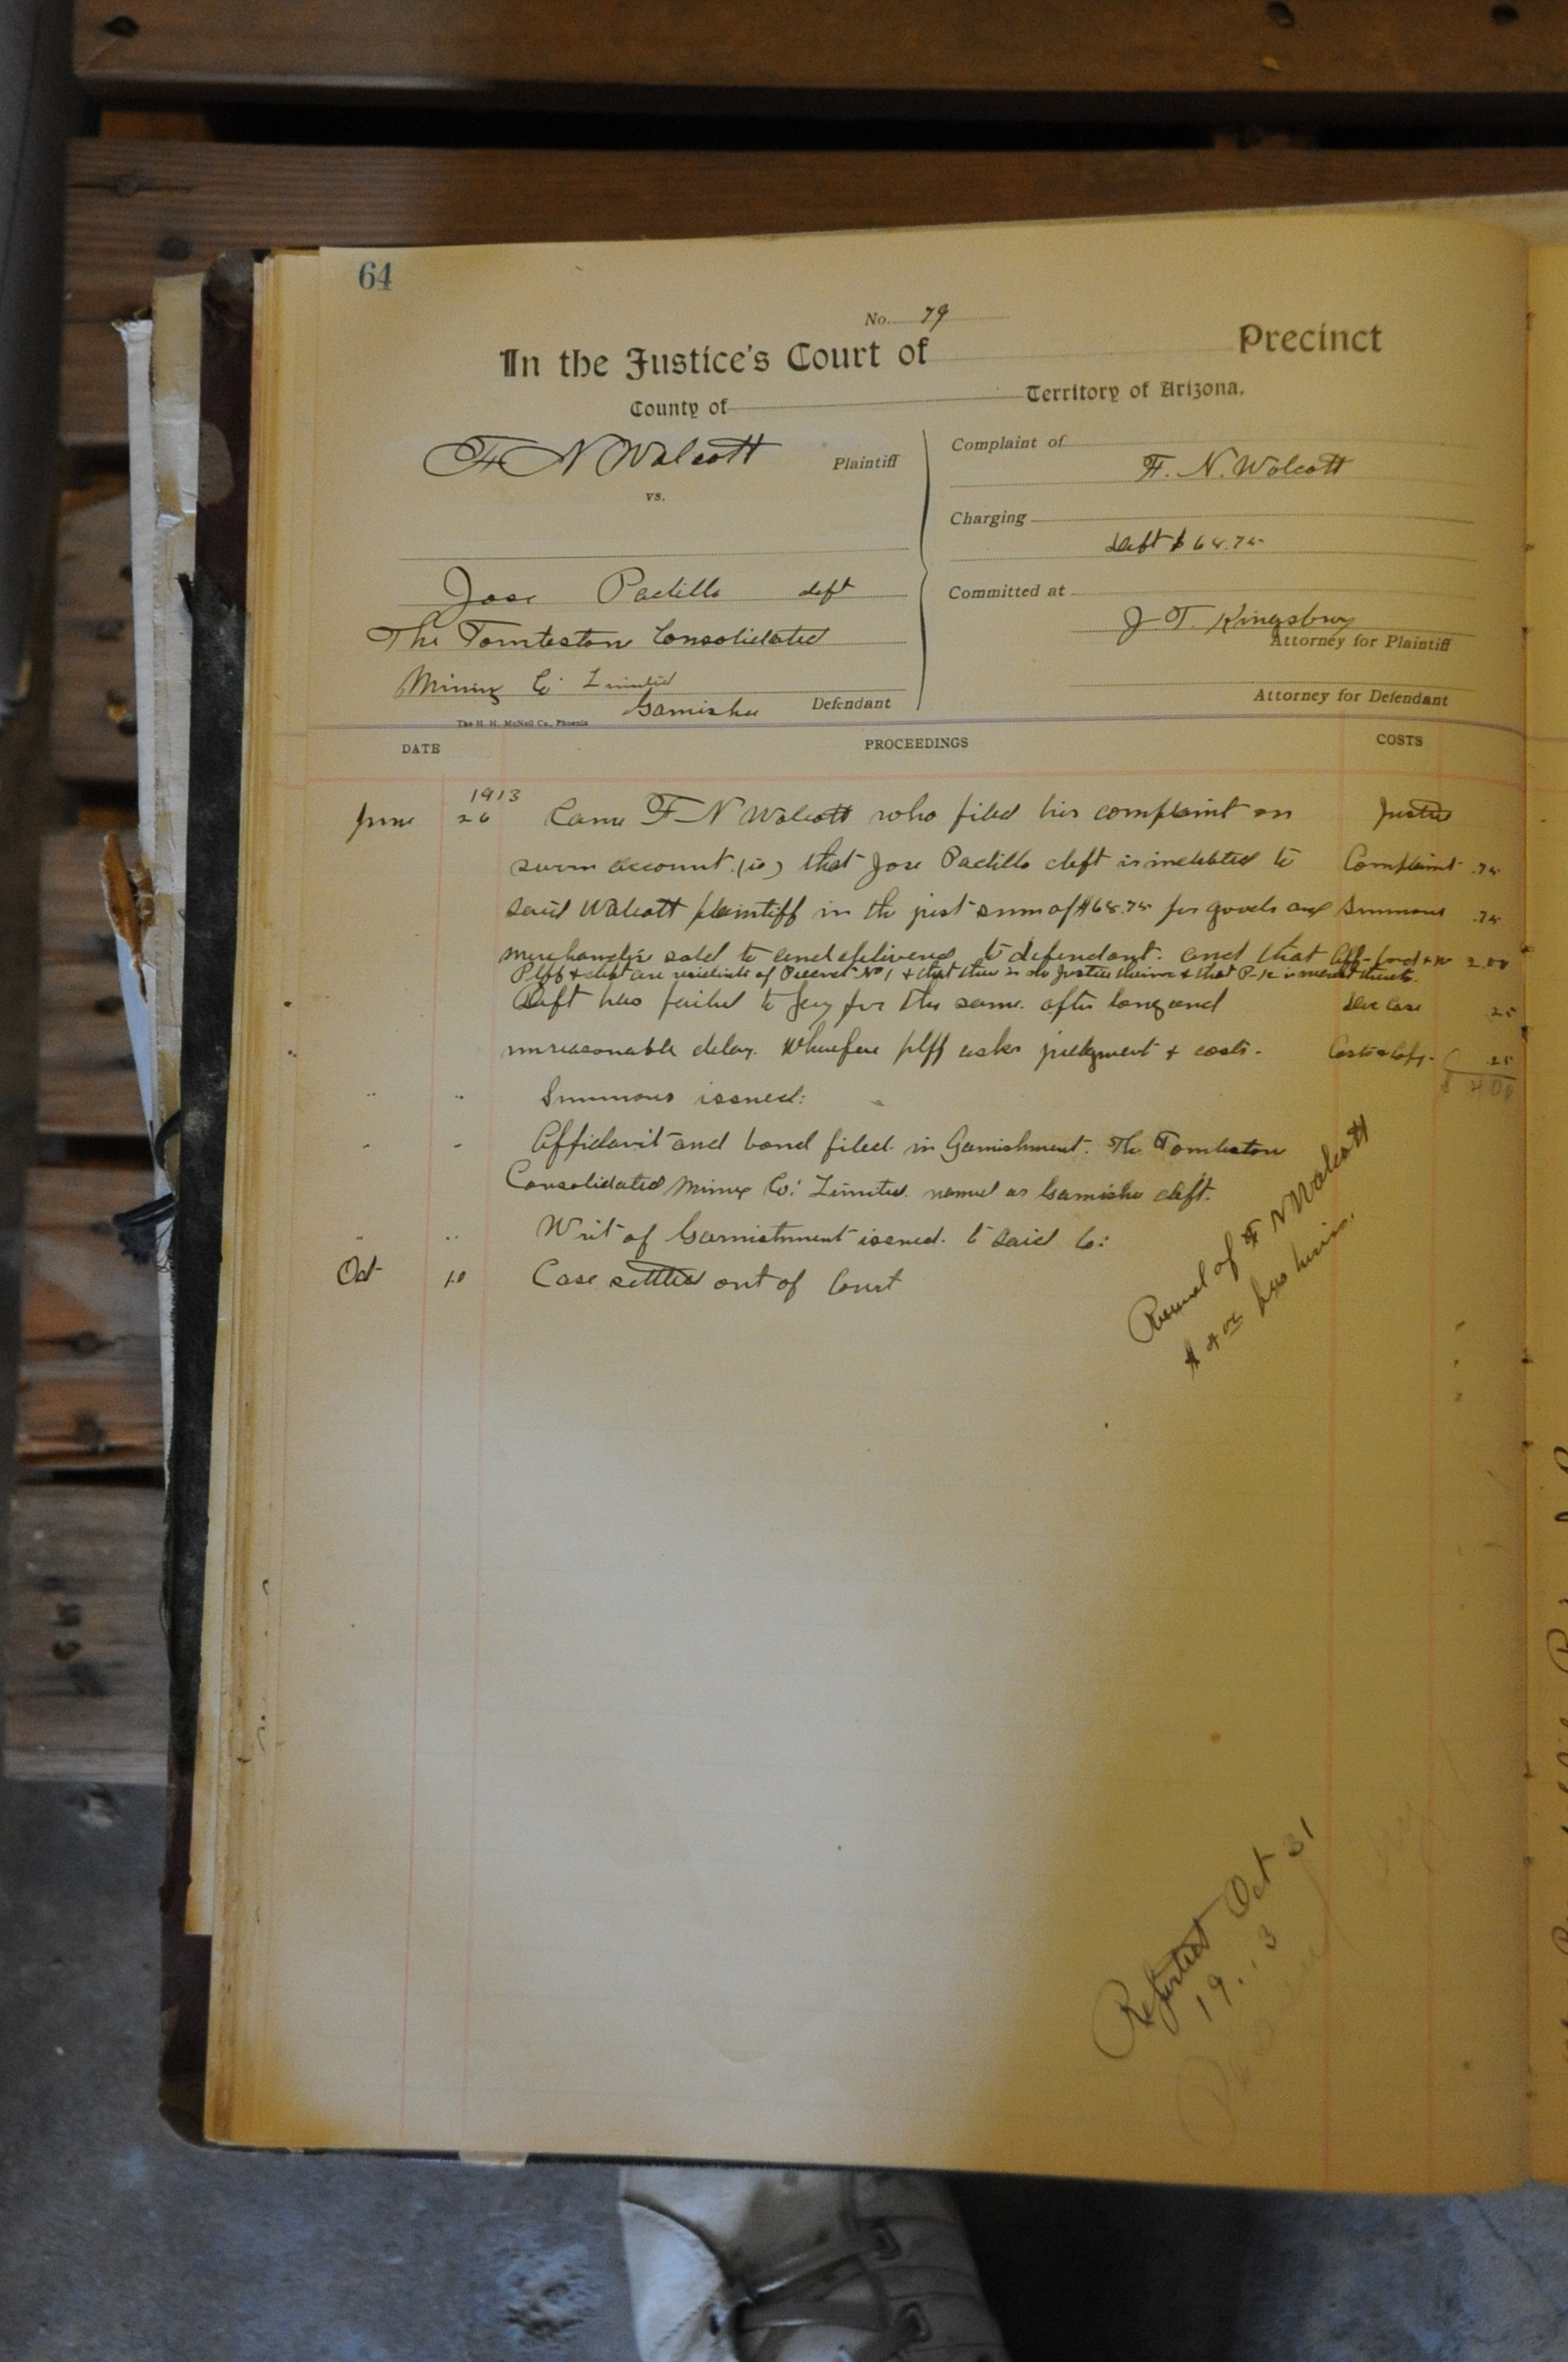 64
No. 79
In the Justice's Court of Precinct
County of Territory of Arizona.
F N Walcott Plaintiff
vs.
Jose Padillo deft
The Tombston Consolidated
Mining Co. Limited
Garnishee Defendant
The H. H. McNeil Co., Phoenix
Complaint of
F. N. Wolcott
Charging
Debt $68.75
Committed at
J. T. Kingsbury
Attorney for Plaintiff
Attorney for Defendant
DATE PROCEEDINGS COSTS
1913
June 26 Came F N Walcott who filed his complaint on Justice
sworn account. that Jose Padillo deft is indebted to Complaint .75
said Walcott plaintiff in the just sum of $68.75 for goods and Summons .75
merchandise sold to and delivered to defendant. and that Aff- bond + W 2.00
Plff + deft are residents of Precinct No 1 + that there is no Justice therein + that P-12 is nearest
Deft has failed to pay for the same. after long and .25
unreasonable delay. Wherefore plff asks judgment + costs. .25
$ 4 00
" " Summons issued:
" " Affidavit and bond filed in Garnishment. The Tombston
Consolidated Mining Co: Limited. named as Garnishee deft.
" " Writ of Garnishment issued. to said Co:
Oct 10 Case settled out of Court
Received of F N Walcott
$ 4 00
Reported Oct 31
1913